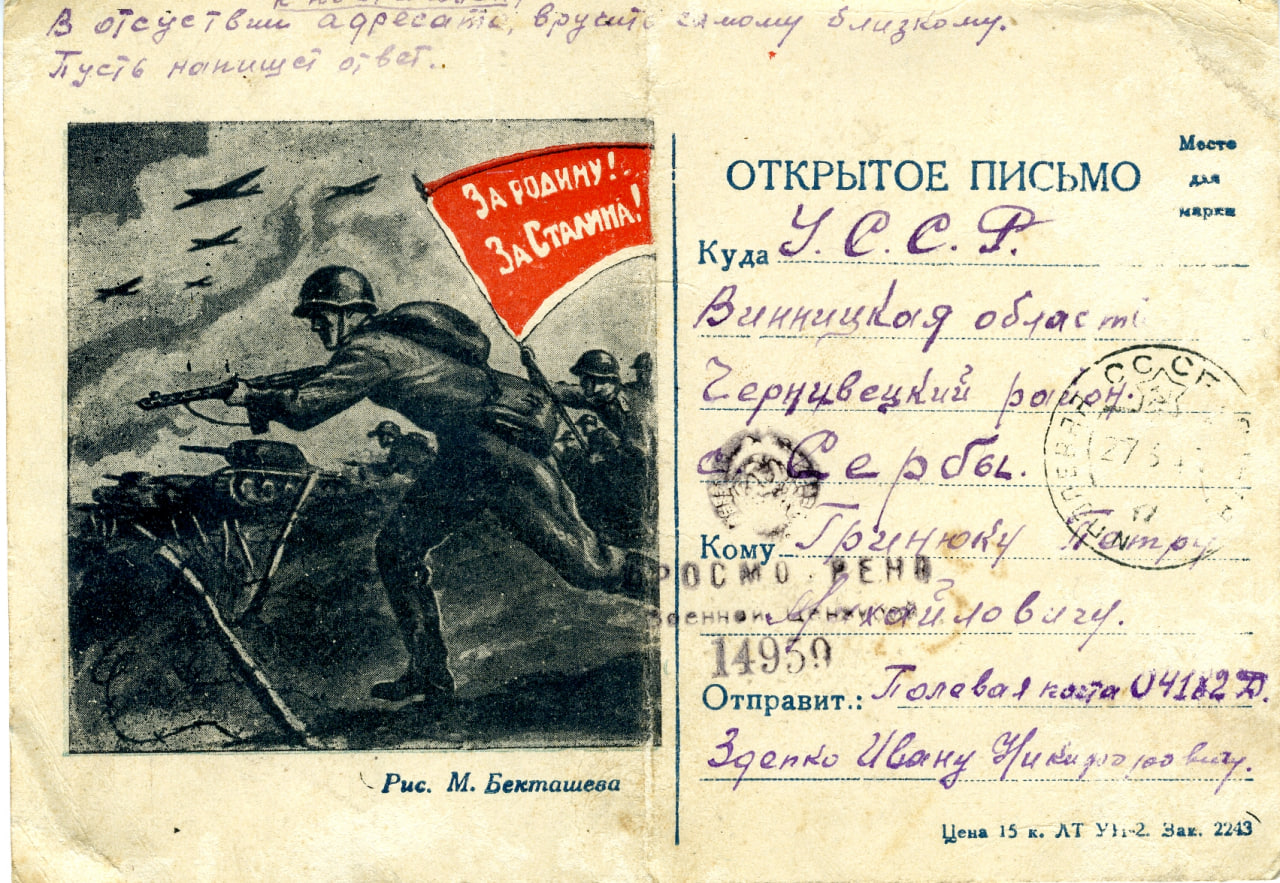 В отсуствии адресата, вручить самому близкому.
Пусть напишет ответ.
За Родину!
За Сталина!
Рис. М. Бекташева
Место
для
марки
ОТКРЫТОЕ ПИСЬМО
Куда У.С.С.Р.
Винницкая област
Чернивецкий район.
с Сербы.
СССР
27
Кому Гринюку Петру
ПРОСМО РЕНО
Военной Цензурой
Михайловичу.
14959
Отправит.: Полевая почта 04182 Д.
Здепко Ивану Никифоровичу.
Цена 15 к. ЛТ УН-2. Зак. 2243